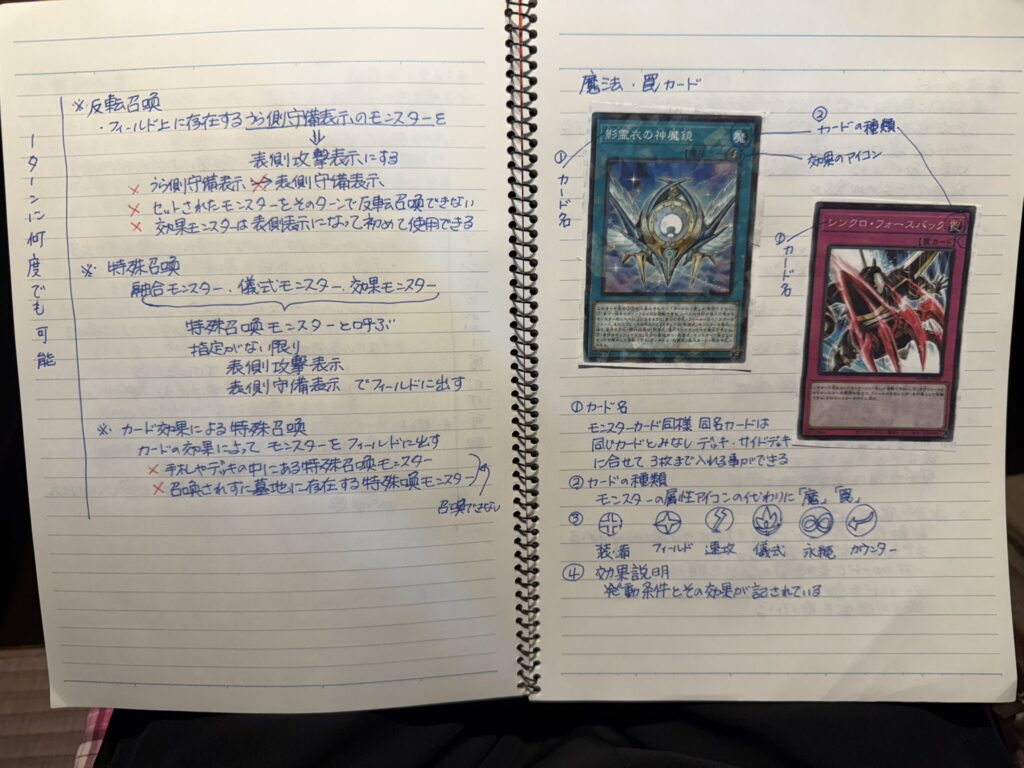 1ターンに何度でも可能
※反転召喚
・フィールド上に存在するうら側守備表示のモンスターを
⇓
表側攻撃表示にする
× うら側守備表示 ⇔ 表側守備表示
× セットされたモンスターをそのターンで反転召喚できない
× 効果モンスターは表側表示になって初めて使用できる
※ 特殊召喚
融合モンスター、儀式モンスター、効果モンスター
特殊召喚モンスターと呼ぶ
指定がない限り
表側攻撃表示
表側守備表示 でフィールドに出す
※ カード効果による特殊召喚
カードの効果によって モンスターをフィールドに出す
× 手札やデッキの中にある特殊召喚モンスター
× 召喚されずに墓地に存在する特殊喚モンスター
召喚できない
魔法・罠カード
① カード名
影霊衣の神魔鏡
魔
② カードの種類
効果のアイコン
① カード名
シンクロ・フォースバック
罠
【罠カード】
① カード名
モンスターカード同様 同名カードは
同じカードとみなし デッキ・サイドデッキ
に合せて 3枚まで入れる事ができる
② カードの種類
モンスターの属性アイコンの代わりに「魔」「罠」
③
装備 フィールド 速攻 儀式 永続 カウンター
④ 効果説明
発動条件とその効果が記されている